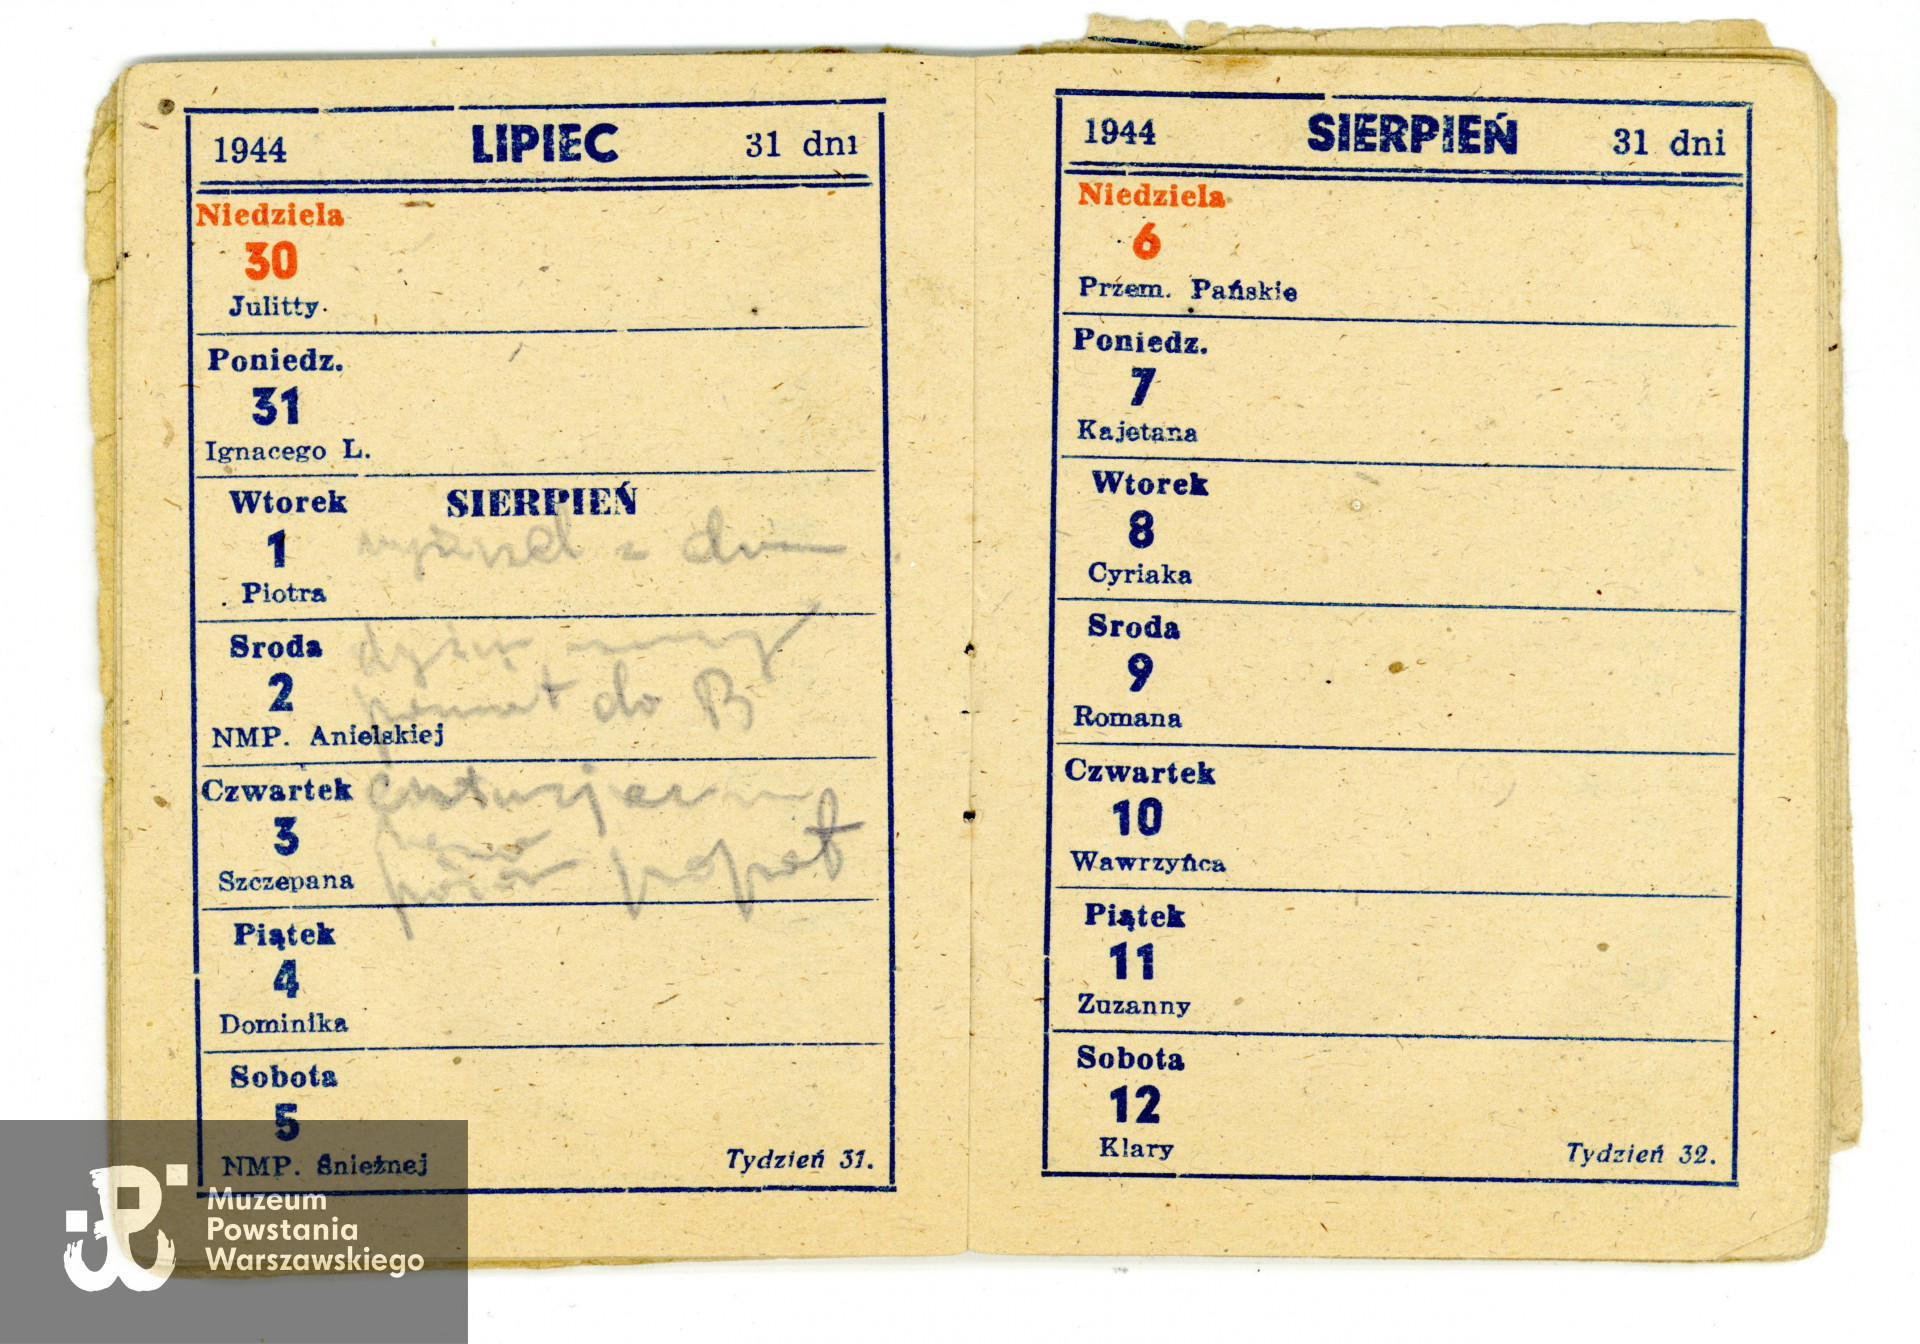 1944 LIPIEC 31 dni
Niedziela
30
Julitty
Poniedz.
31
Ignacego L.
Wtorek SIERPIEŃ
1 z
Piotra
Sroda
2 do B
NMP. Anielskiej
Czwartek
3
Szczepana
Piątek
4
Dominika
Sobota
5
NMP. Śnieżnej Tydzień 31.
1944 SIERPIEŃ 31 dni
Niedziela
6
Przem. Pańskie
Poniedz.
7
Kajetana
Wtorek
8
Cyriaka
Sroda
9
Romana
Czwartek
10
Wawrzyńca
Piątek
11
Zuzanny
Sobota
12
Klary Tydzień 32.
Muzeum
Powstania
Warszawskiego